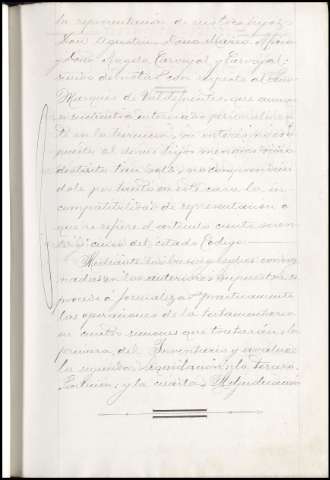 la representación de sus tres hijos
Don Agustin, Dona Maria
y Dona Angela Carvajal y Carvajal;
siendo de notar con respecto al Señor
Marques de Valdefuentes que aunque
se encuentra interesado personalmen
te en la herencia, su interés no es o
puesto al de sus hijos menores sino
distinto tan solo, no comprendien
dole por tanto en este caso la in
compatibilidad de representacion a
que se refiere el articulo ciento sesen
ta y cinco del citado Codigo.
Mediante las bases legales consig
nadas en los anteriores supuestos se
procede á formalizar practicamente
las operaciones de la testamentaria
en cuatro secciones que tratarán: la
primera, del Inventario y avaluo;
la segunda Liquidacion; la Tercera
Particion, y la cuarta Adjudicacion